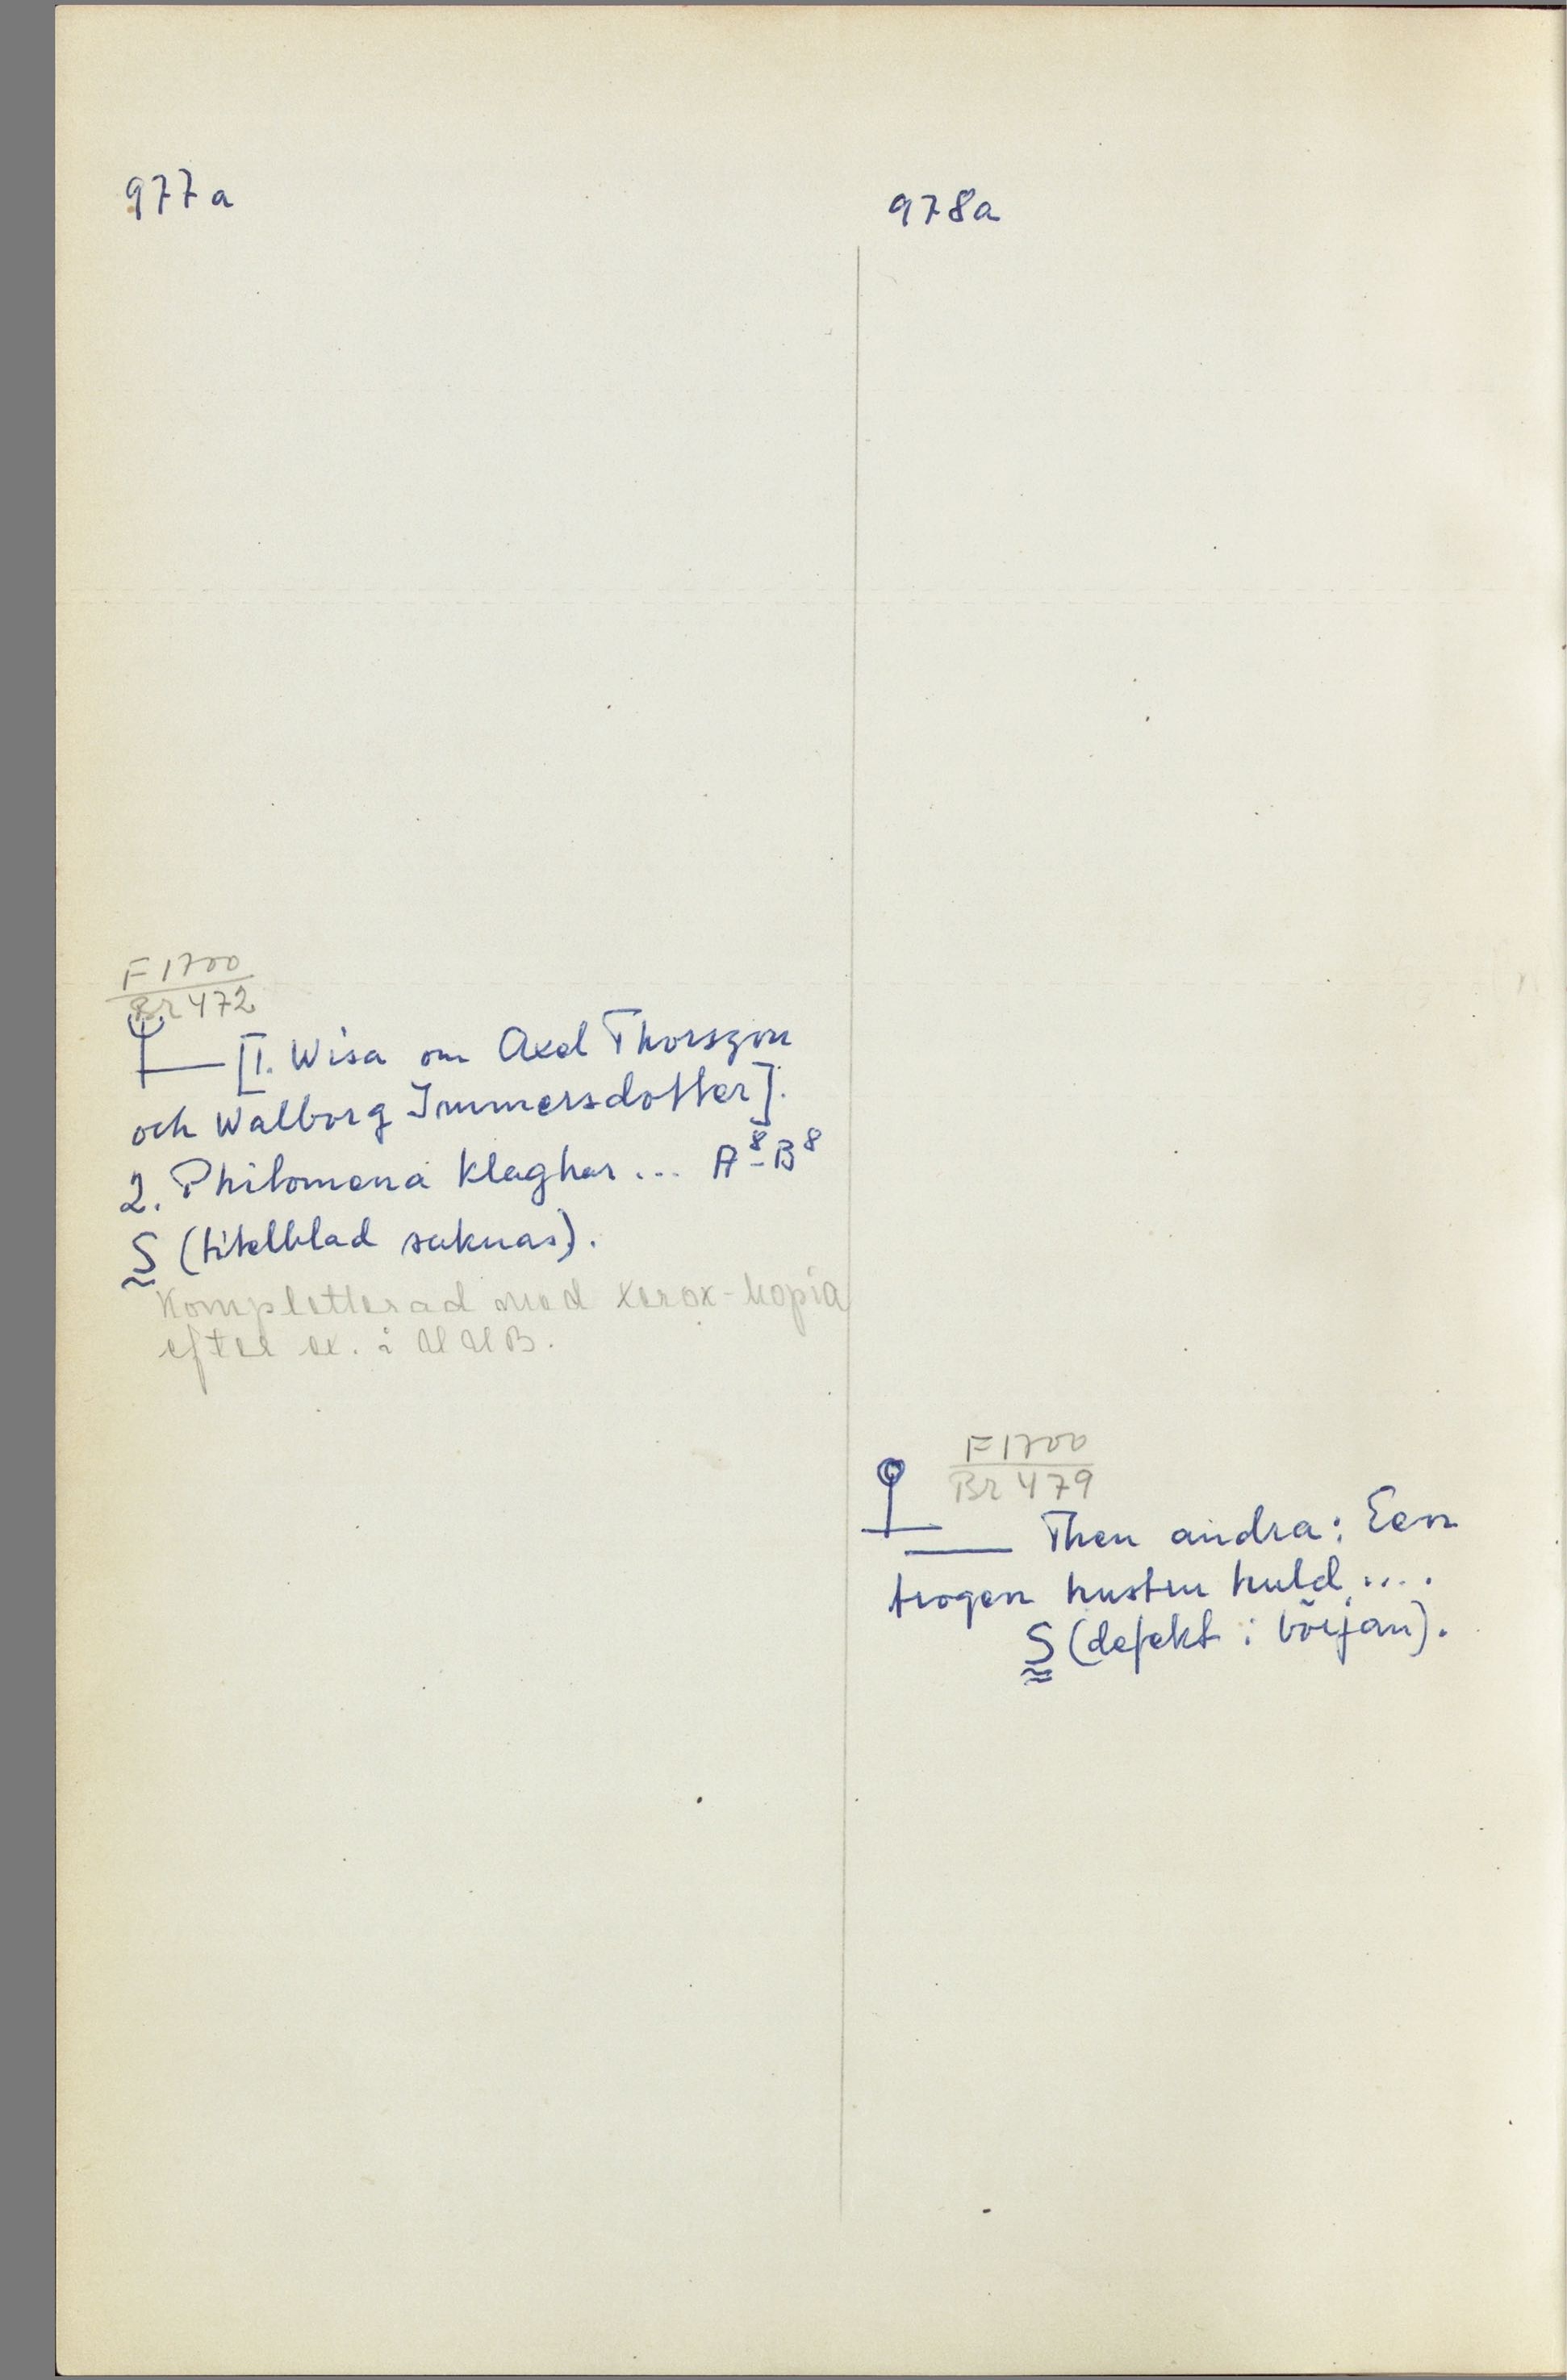 977a
F1700
Br 472
[1. Wisa om Axel Thorszon
och Walborg Immersdotter].
2. Philomena klaghar... A⁸-B⁸
S (titelblad saknas).
Kompletterad med xerox-kopia
efter ex. i UUB.
978a
F1700
Br 479
Then andra: Een
trogen hustru huld....
S (defekt i början).